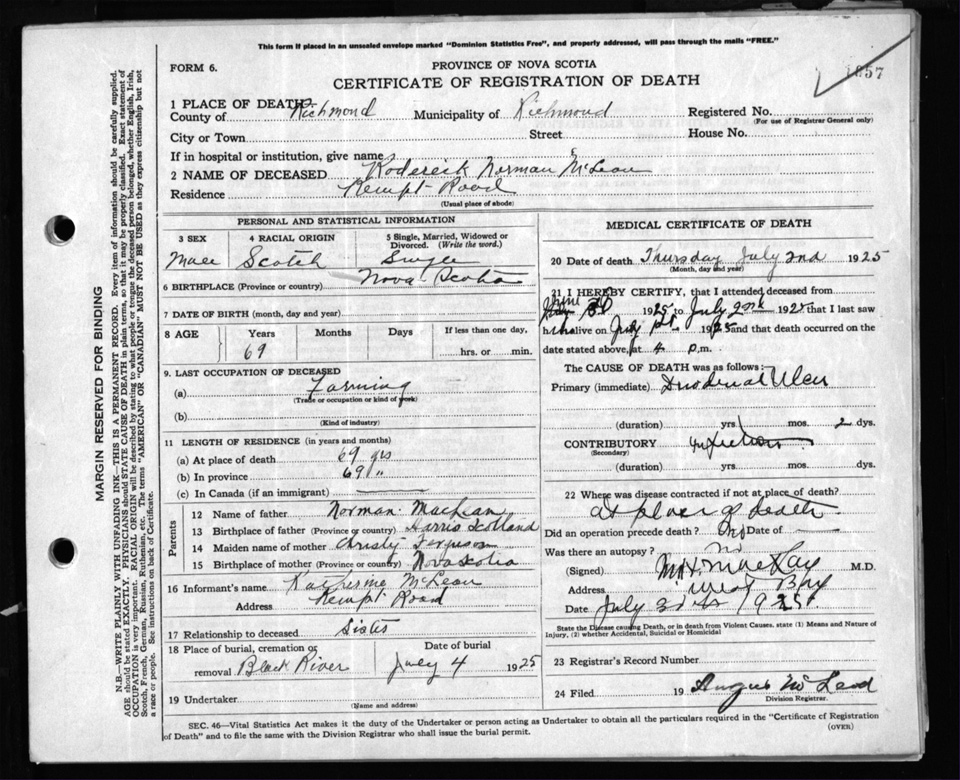 This form if placed in an unsealed envelope marked "Dominion Statistics Free", and properly addressed, will pass through the mails "FREE."
FORM 6.
PROVINCE OF NOVA SCOTIA
CERTIFICATE OF REGISTRATION OF DEATH
1 PLACE OF DEATH
County of Richmond Municipality of Richmond Registered No.
(For use of Registrar General only)
City or Town Street House No.
If in hospital or institution, give name
2 NAME OF DECEASED Roderick Norman McLean
Residence Kempt Road
(Usual place of abode)
PERSONAL AND STATISTICAL INFORMATION
3 SEX 4 RACIAL ORIGIN 5 Single, Married, Widowed or Divorced. (Write the word.)
Male Scotch Single
6 BIRTHPLACE (Province or country) Nova Scotia
7 DATE OF BIRTH (month, day and year)
8 AGE Years Months Days If less than one day,
69 hrs. or min.
9. LAST OCCUPATION OF DECEASED
(a) Farming
(Trade or occupation or kind of work)
(b)
(Kind of industry)
11 LENGTH OF RESIDENCE (in years and months)
(a) At place of death 69 yrs
(b) In province 69 "
(c) In Canada (if an immigrant)
Parents
12 Name of father Norman MacLean
13 Birthplace of father (Province or country) Harris Scotland
14 Maiden name of mother Christy Ferguson
15 Birthplace of mother (Province or country) Nova Scotia
16 Informant's name Katherine McLean
Address Kempt Road
17 Relationship to deceased Sister
18 Place of burial, cremation or removal Black River
Date of burial
July 4 1925
19 Undertaker
(Name and address)
MEDICAL CERTIFICATE OF DEATH
20 Date of death Thursday July 2nd 1925
(Month, day and year)
21 I HEREBY CERTIFY, that I attended deceased from
June 1925 to July 2nd 1925 that I last saw
h alive on July 1st 1925 and that death occurred on
date stated above, at 4 p.m.
The CAUSE OF DEATH was as follows:
Primary (immediate) Duodenal Ulcer
(duration) yrs. mos. 2 dys.
CONTRIBUTORY
(Secondary)
(duration) yrs. mos. dys.
22 Where was disease contracted if not at place of death?
at place of death
Did an operation precede death? No Date of
Was there an autopsy? no
(Signed) MacKay M.D.
Address West Bay
Date July 3rd 1925
State the Disease causing Death, or in death from Violent Causes, state (1) Means and Nature of
Injury, (2) whether Accidental, Suicidal or Homicidal
23 Registrar's Record Number
24 Filed 19 Angus McLeod
Division Registrar.
SEC. 46—Vital Statistics Act makes it the duty of the Undertaker or person acting as Undertaker to obtain all the particulars required in the "Certificate of Registration
of Death" and to file the same with the Division Registrar who shall issue the burial permit.
(OVER)
MARGIN RESERVED FOR BINDING
N.B.—WRITE PLAINLY WITH UNFADING INK—THIS IS A PERMANENT RECORD. Every item of information should be carefully supplied.
AGE should be stated EXACTLY. PHYSICIANS should STATE CAUSE OF DEATH in plain terms, so that it may be properly classified. Exact statement of
OCCUPATION is very important. RACIAL ORIGIN will be described by stating to what people or tongue the deceased person belonged, whether English, Irish,
Scotch, French, German, Russian, Ruthenian, etc. The terms "AMERICAN" or "CANADIAN" MUST NOT BE USED as they express citizenship but not
a race or people. See instructions on back of Certificate.